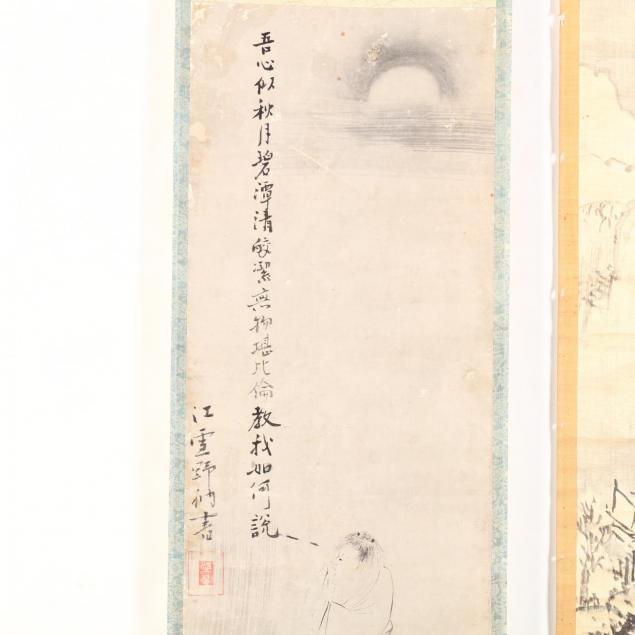 吾心似秋月碧潭清皎潔無物堪比倫教我如何說
江雪野衲書